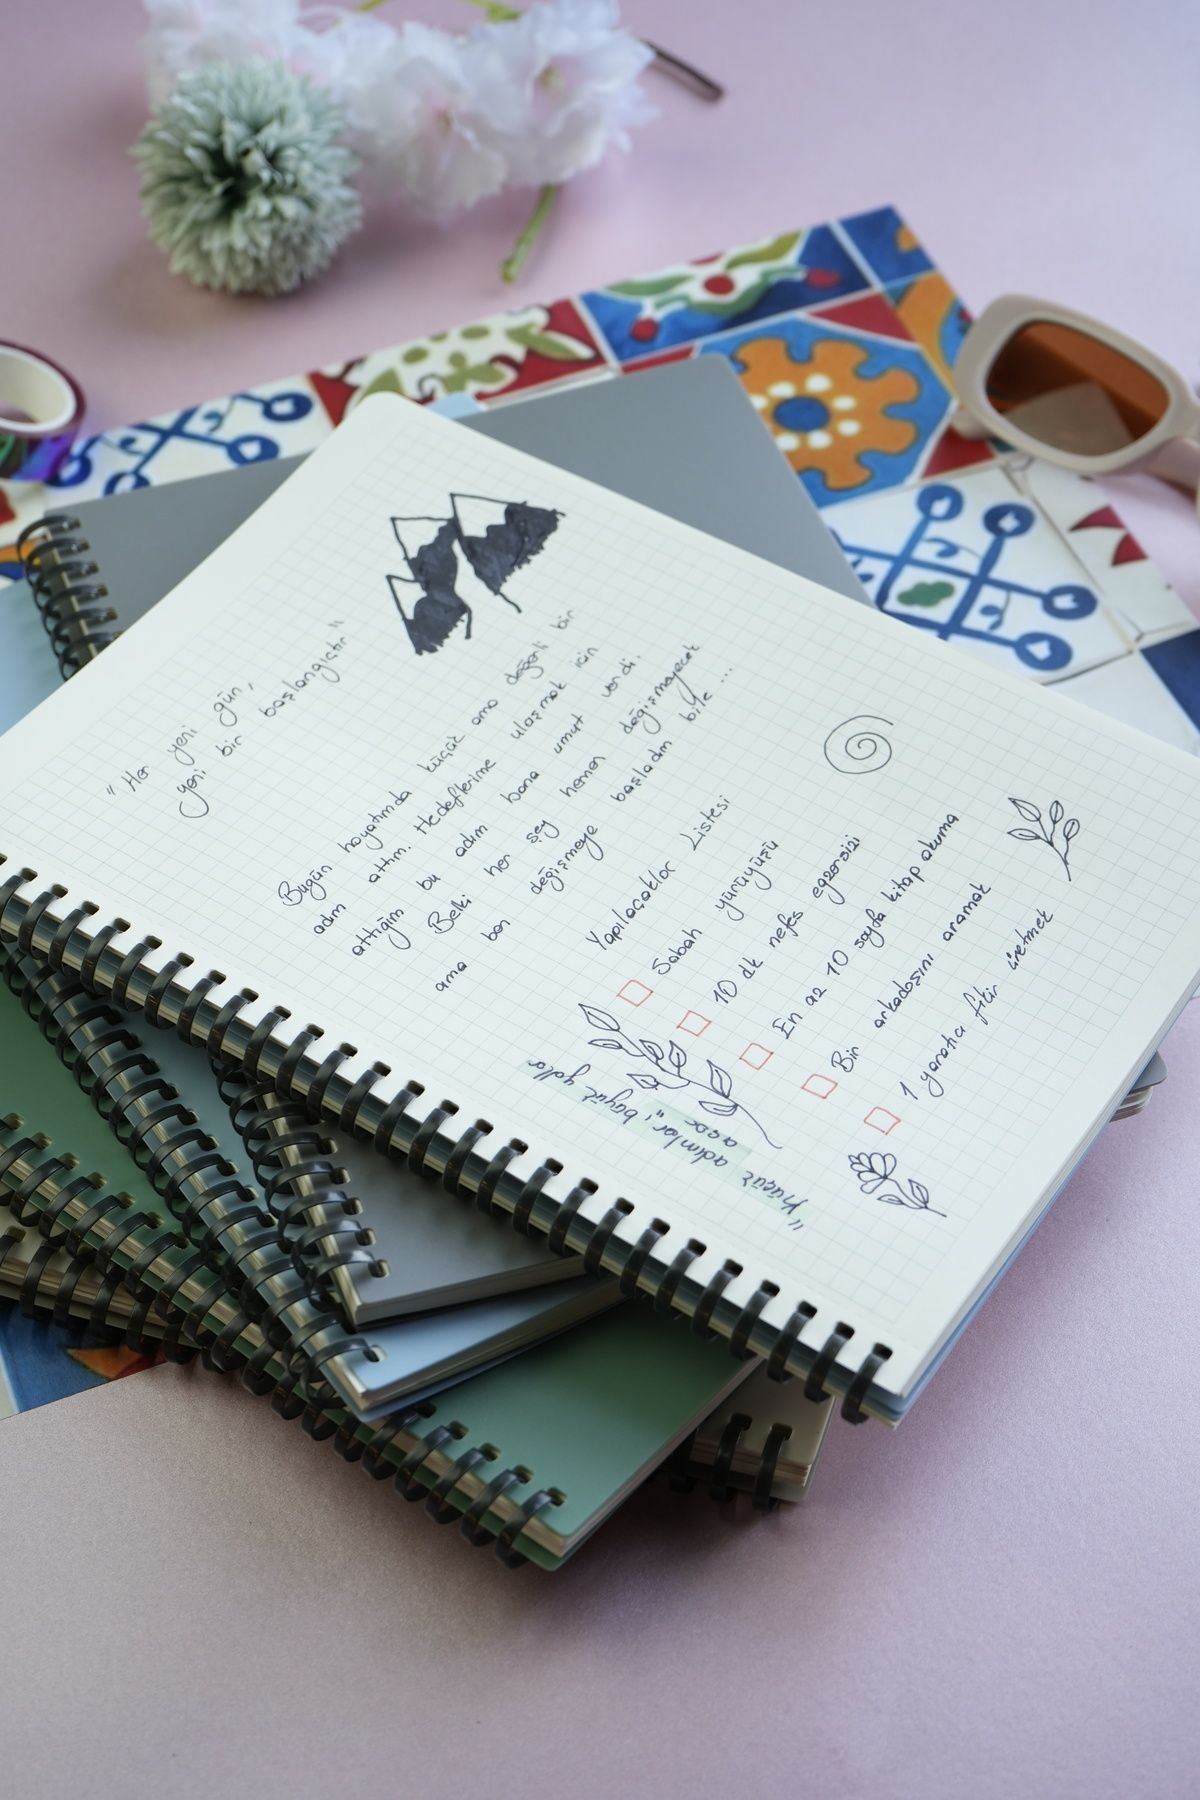 "Her yeni gün,
yeni bir başlangıçtır"
Bugün hayatımda küçük ama değerli bir
adım attım. Hedeflerime ulaşmak için
attığım bu adım bana umut verdi.
Belki her şey hemen değişmeyecek
ama ben değişmeye başladım bile...
Yapılacaklar Listesi
Sabah yürüyüşü
10 dk nefes egzersizi
En az 10 sayfa kitap okuma
Bir arkadaşını aramak
1 yaratıcı fikir üretmek
"Küçük adımlar, büyük yollar
açar"